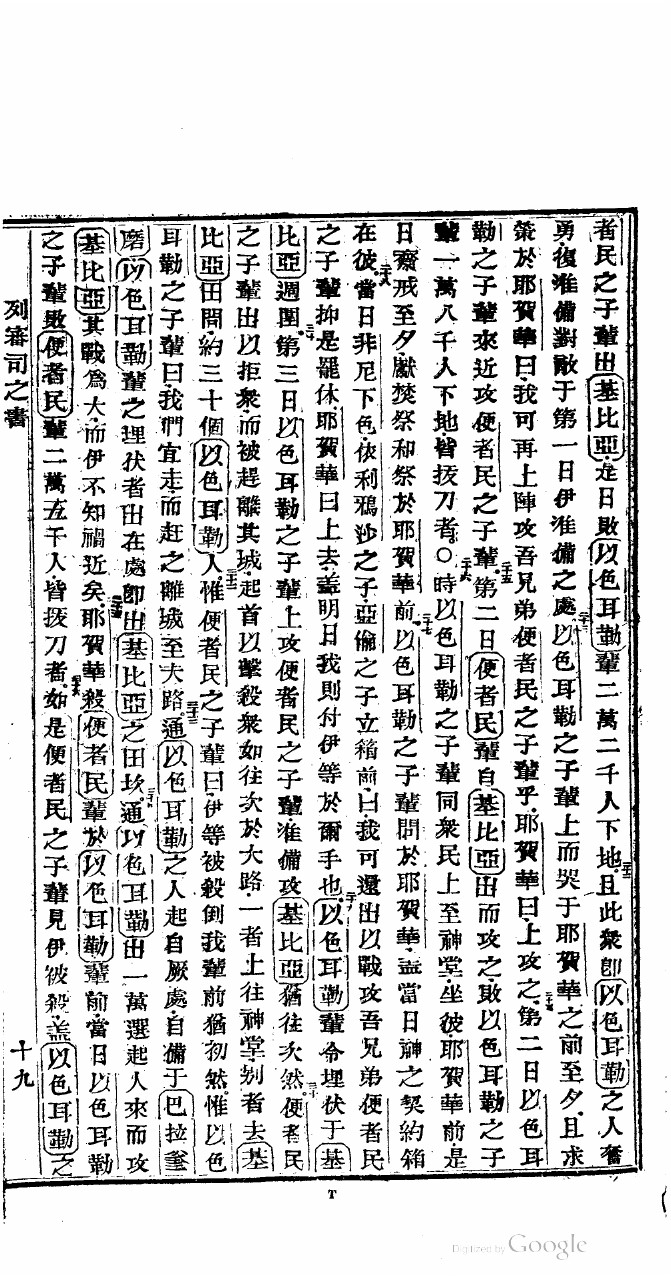 者民之子輩出基比亞是日敗以色耳勒輩二萬二千人下地二十二且此衆即以色耳勒之人奮
勇復准備對敵于第一日伊准備之處二十三以色耳勒之子輩上而哭于耶賀華之前至夕且求
策於耶賀華曰我可再上陣攻吾兄弟便者民之子輩乎耶賀華曰上攻之二十四第二日以色耳
勒之子輩來近攻便者民之子輩二十五第二日便者民輩自基比亞出而攻之敗以色耳勒之子
輩一萬八千人下地皆拔刀者○二十六時以色耳勒之子輩同衆民上至神堂坐彼耶賀華前是
日齋戒至夕獻焚祭和祭於耶賀華前二十七以色耳勒之子輩問於耶賀華蓋當日神之契約箱
在彼二十八當日非尼下色依利鴉沙之子亞倫之子立箱前曰我可還出以戰攻吾兄弟便者民
之子輩抑是罷休耶賀華曰上去蓋明日我則付伊等於爾手也二十九以色耳勒輩令埋伏于基
比亞週圍三十第三日以色耳勒之子輩上攻便者民之子輩准備攻基比亞猶往次然三十一便者民
之子輩出以拒衆而被趕離其城起首以擊殺衆如往次於大路一者上往神堂别者去基
比亞田間約三十個以色耳勒人三十二惟便者民之子輩曰伊等被殺倒我輩前猶初然惟以色
耳勒之子輩曰我們宜走而赶之離城至大路三十三通以色耳勒之人起自厥處自備于巴拉
磨以色耳勒輩之埋伏者出在處即出基比亞之田坎三十四通以色耳勒出一萬選起人來而攻
基比亞其戰為大而伊不知禍近矣三十五耶賀華殺便者民輩於以色耳勒輩前當日以色耳勒
之子輩敗便者民輩二萬五千人皆拔刀者三十六如是便者民之子輩見伊被殺蓋以色耳勒之
列審司之書
十九
T
Digitized by Google